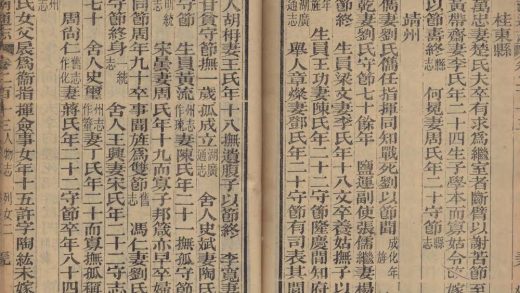 桂東縣
萬忠妻楚氏夫卒有求爲繼室者斷臂以謝苦節至
黃帶齋妻李氏年二十四生子學本而寡姑令改嫁
以節壽終 志 何冕妻周氏年二十二守節 縣志
靖州
儁妻劉氏儁任指揮同知戰死劉以節聞 成化年
乾妻劉氏守節七十餘年 鹽運副使張儒繼妻楊
節終 生員梁文妻李氏年十八文卒養姑撫子以
生員王功妻陳氏年二十二守節隆慶間知府
舉人章燦妻鄧氏年二十守節有司表其閭
人胡相妻王氏年十八撫遺腹子以節終 李寬妻
甘貧守節撫一歲孤成立 湖廣通志 舍人史斌妻陶氏
州志 生員黃流 妻陳氏年二十一撫孤守節
統志 宋晏妻周氏年十九而寡邦箴亦早卒婦
周年九十卒事聞旌爲雙節 舊志 馮仁妻劉氏
守節終身 一統志 舍人王興妻宋氏年二十二守志
七十 舍人史璽 州志作 妻丁氏年二十而寡撫孤稱
周尚仁 舊志作化 妻蔣氏年二十二守節卒年八十四
氏女父辰爲衛指揮僉事女年十五許字陶紘未嫁
南通志 卷二百十三 人物志 列女二